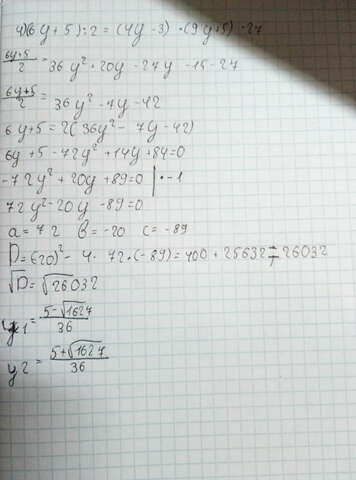 4)(6y+5):2=(4y-3)·(9y+5)-27
6y+5/2=36y²+20y-27y-15-27
6y+5/2=36y²-7y-42
6y+5=2(36y²-7y-42)
6y+5-72y²+14y+84=0
-72y²+20y+89=0 |·-1
72y²-20y-89=0
a=72 b=-20 c=-89
D=(-20)²-4·72·(-89)=400+25632=26032
√D=√26032
y1=5-√1627/36
y2=5+√1627/36